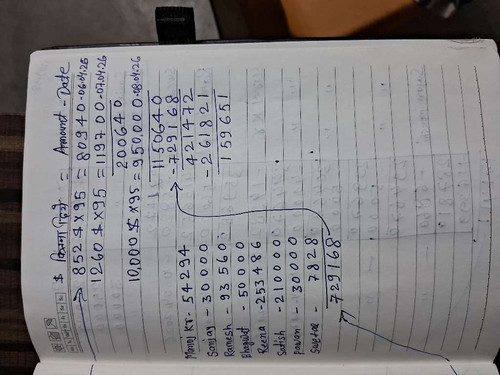 $ कितना दिये = Amount - Date
852 $ x 95 = 80940 - 06.04.26
1260 $ x 95 = 119700 - 07.04.26
200640
10,000 $ x 95 = 950000 - 08.04.26
1150640
- 729168
421472
- 261821
159651
Manoj Kr - 54294
Sanjay - 30000
Ramesh - 93560
Bhagwat - 50000
Reena - 253486
Satish - 210000
pawan - 30000
Sweta - 7828
729168